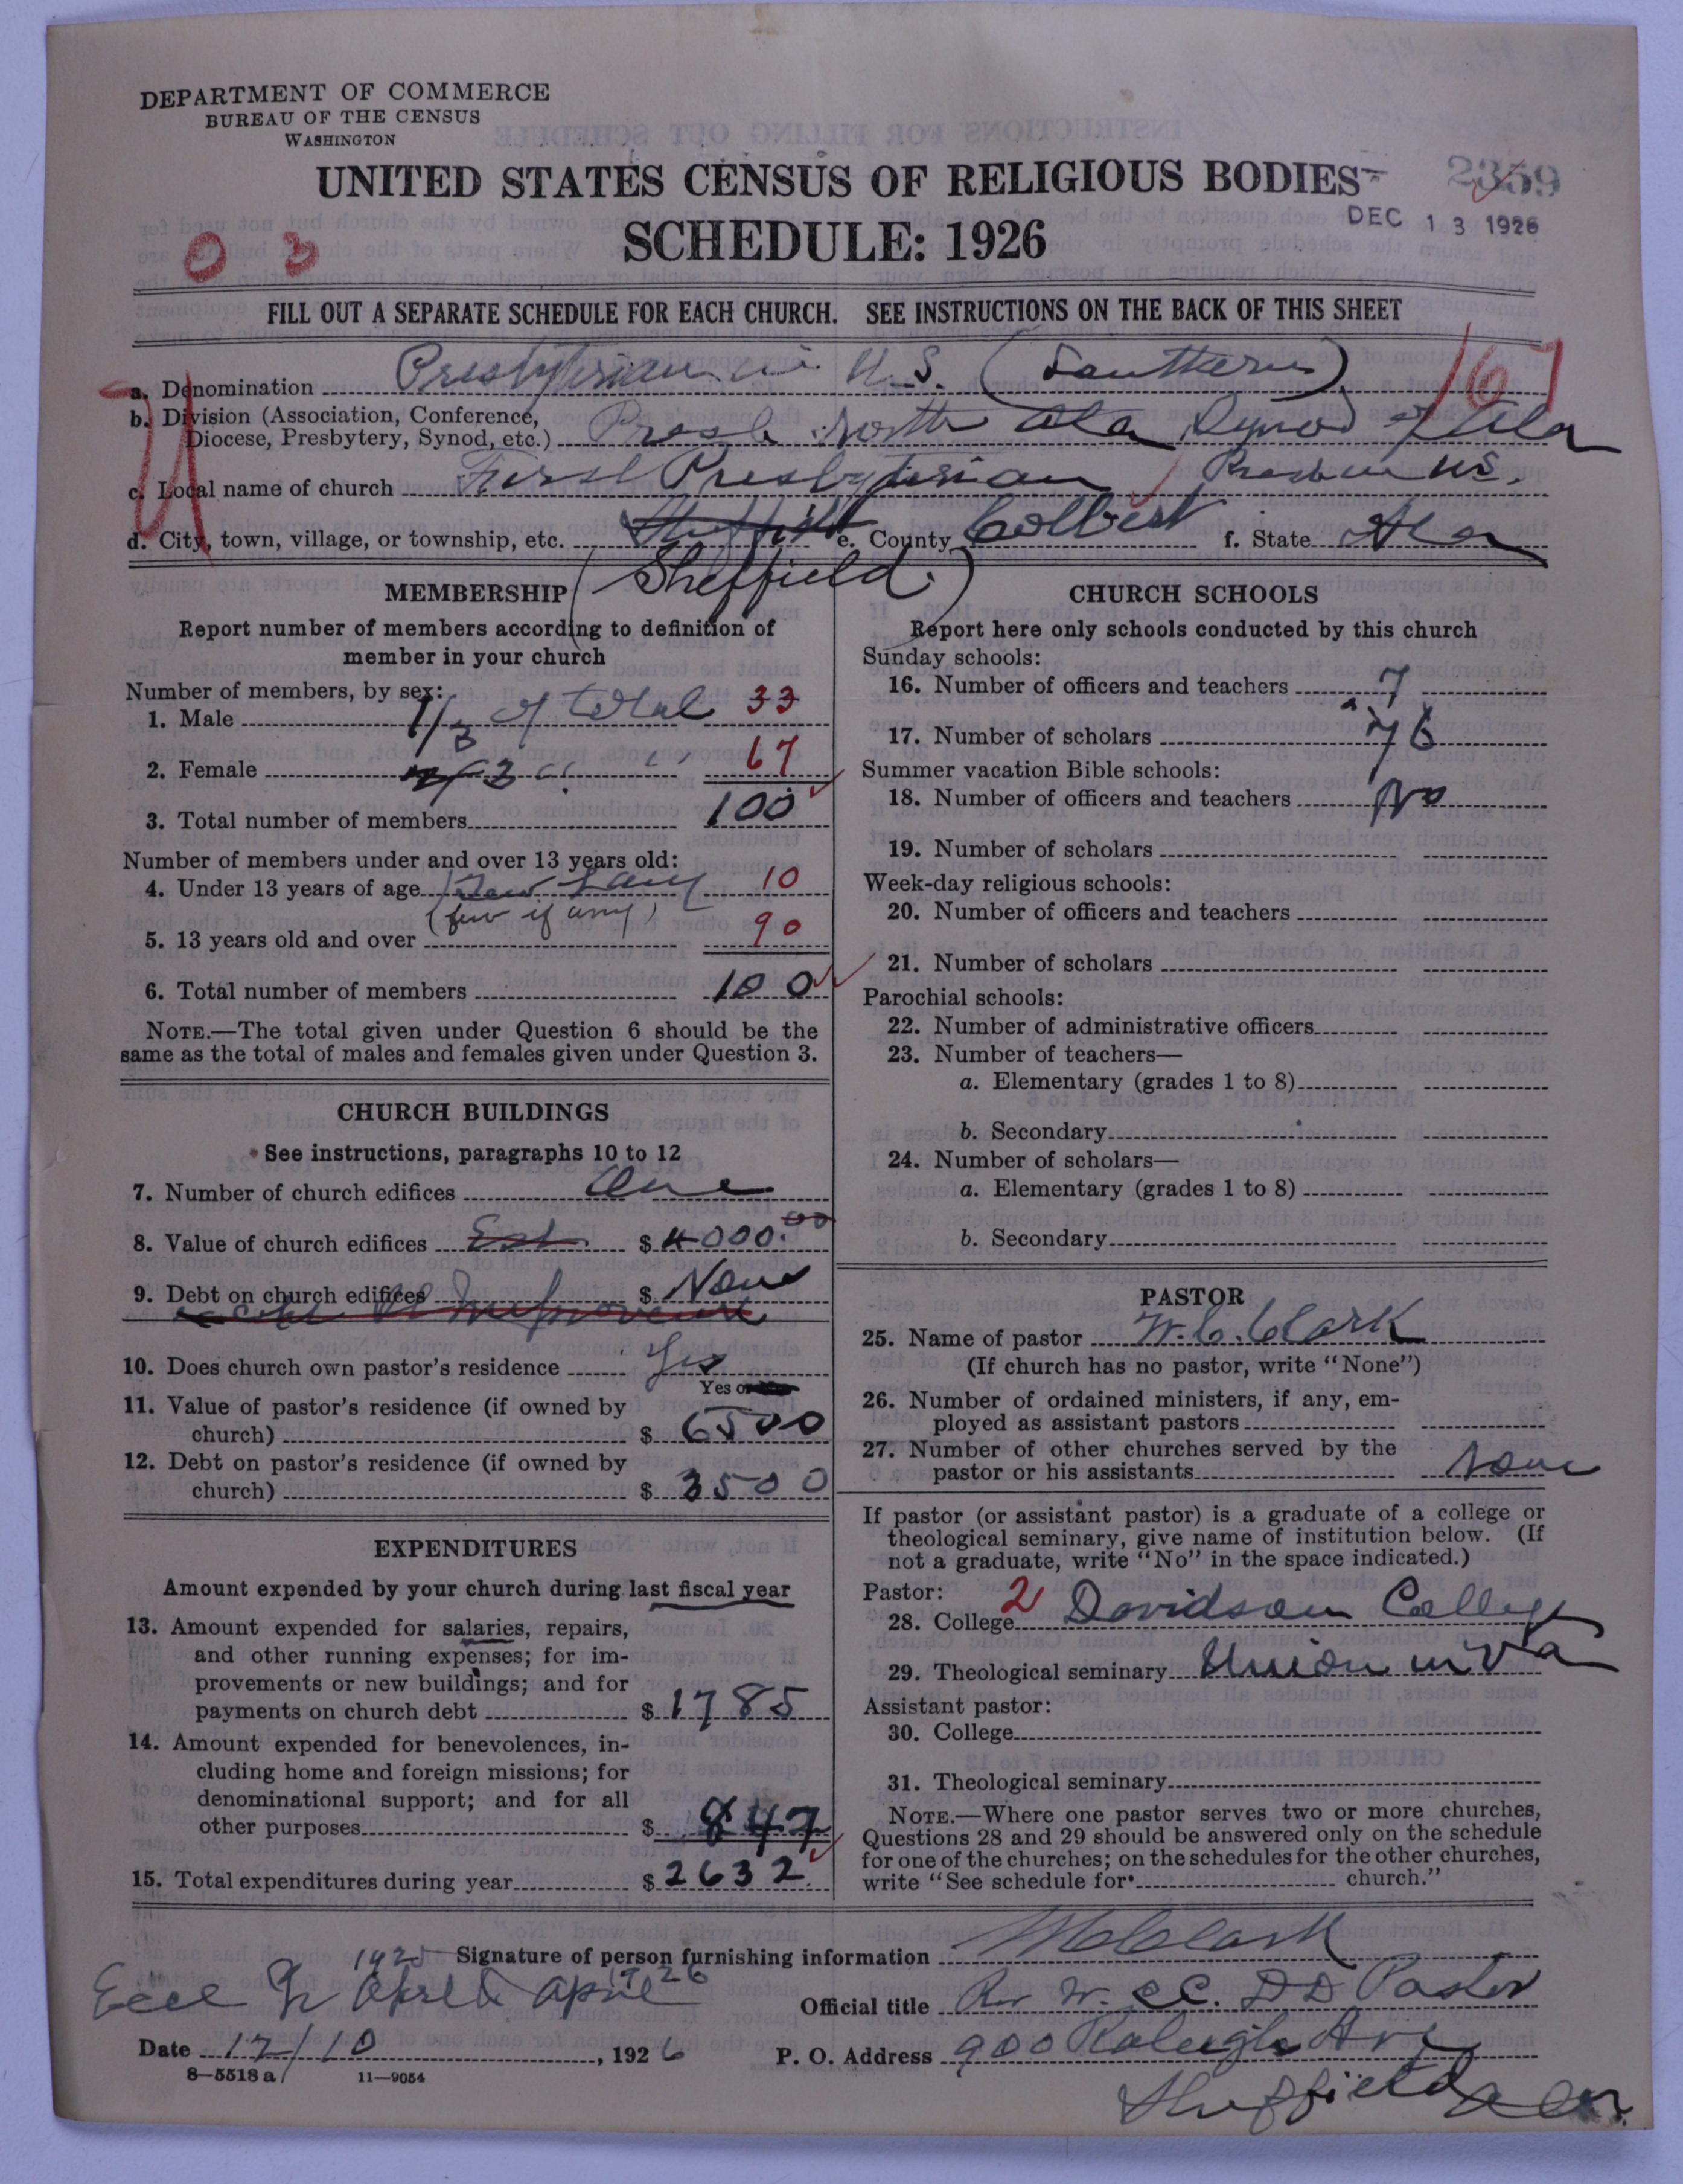 DEPARTMENT OF COMMERCE
BUREAU OF THE CENSUS
WASHINGTON
UNITED STATES CENSUS OF RELIGIOUS BODIES
2359
SCHEDULE: 1926
DEC 13 1926
0 3
FILL OUT A SEPARATE SCHEDULE FOR EACH CHURCH. SEE INSTRUCTIONS ON THE BACK OF THIS SHEET
167
a. Denomination Presbyterian in U.S. (Southern)
b. Division (Association, Conference,
Diocese, Presbytery, Synod, etc.) Presb. North Ala Synod of Ala
c. Local name of church First Presbyterian Presb in U.S.
d. City, town, village, or township, etc. Sheffield e. County Colbert f. State Ala
(Sheffield)
MEMBERSHIP
Report number of members according to definition of
member in your church
Number of members, by sex:
1. Male 1/3 of total 33
2. Female 2/3 " " 67
3. Total number of members 100
Number of members under and over 13 years old:
4. Under 13 years of age Few if any 10
(few if any)
5. 13 years old and over 90
6. Total number of members 100
NOTE.—The total given under Question 6 should be the
same as the total of males and females given under Question 3.
CHURCH BUILDINGS
See instructions, paragraphs 10 to 12
7. Number of church edifices One
8. Value of church edifices Est $ 4000.00
9. Debt on church edifices $ None
10. Does church own pastor's residence Yes
Yes or No
11. Value of pastor's residence (if owned by
church) $ 6500
12. Debt on pastor's residence (if owned by
church) $ 3500
EXPENDITURES
Amount expended by your church during last fiscal year
13. Amount expended for salaries, repairs,
and other running expenses; for im-
provements or new buildings; and for
payments on church debt $ 1785
14. Amount expended for benevolences, in-
cluding home and foreign missions; for
denominational support; and for all
other purposes $ 847
15. Total expenditures during year $ 2632
CHURCH SCHOOLS
Report here only schools conducted by this church
Sunday schools:
16. Number of officers and teachers 7
17. Number of scholars 76
Summer vacation Bible schools:
18. Number of officers and teachers No
19. Number of scholars
Week-day religious schools:
20. Number of officers and teachers
21. Number of scholars
Parochial schools:
22. Number of administrative officers
23. Number of teachers—
a. Elementary (grades 1 to 8)
b. Secondary
24. Number of scholars—
a. Elementary (grades 1 to 8)
b. Secondary
PASTOR
25. Name of pastor W. C. Clark
(If church has no pastor, write "None")
26. Number of ordained ministers, if any, em-
ployed as assistant pastors
27. Number of other churches served by the
pastor or his assistants None
If pastor (or assistant pastor) is a graduate of a college or
theological seminary, give name of institution below. (If
not a graduate, write "No" in the space indicated.)
Pastor: 2
28. College Davidson College
29. Theological seminary Union in Va
Assistant pastor:
30. College
31. Theological seminary
NOTE.—Where one pastor serves two or more churches,
Questions 28 and 29 should be answered only on the schedule
for one of the churches; on the schedules for the other churches,
write "See schedule for church."
Signature of person furnishing information W C Clark
1925 1926
April April
Official title Rev W. C C. D D Pastor
Date 12/10, 1926
P. O. Address 900 Raleigh Ave
Sheffield Ala.
8—5518 a 11—9054